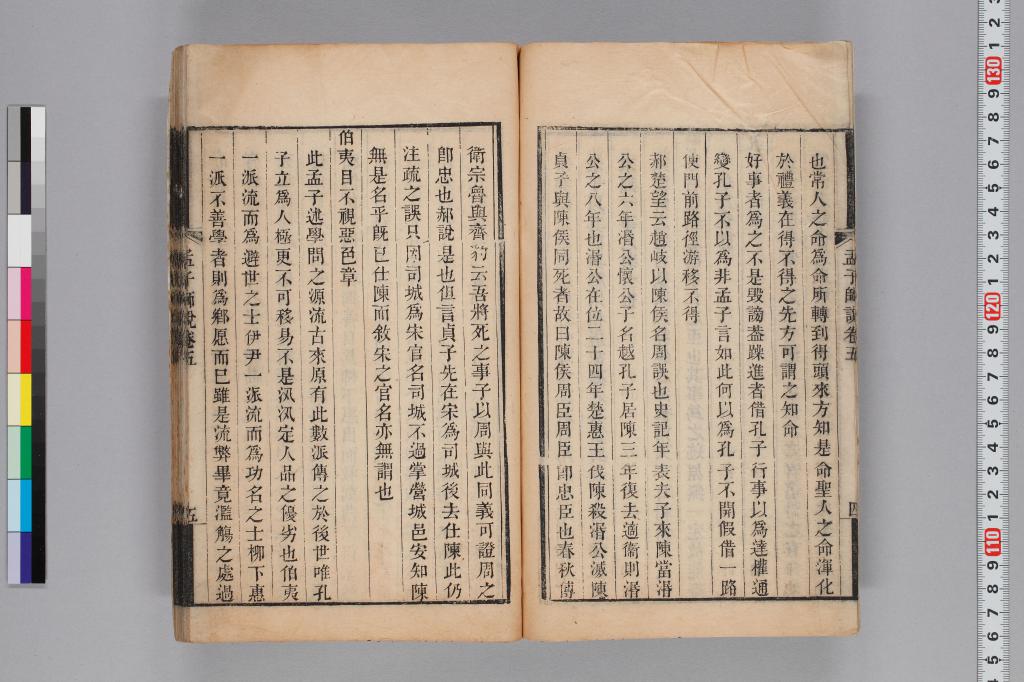 也常人之命爲命所轉到得頭來方知是命聖人之命渾化
於禮義在得不得之先方可謂之知命
好事者爲之不是毀謗葢躁進者借孔子行事以爲達權通
變孔子不以爲非孟子言如此何以爲孔子不開假借一路
使門前路徑游移不得
郝楚望云趙岐以陳侯名周誤也史記年表夫子來陳當湣
公之六年湣公懷公子名越孔子居陳三年復去適衞則湣
公之八年也湣公在位二十四年楚惠王伐陳殺湣公滅陳
貞子與陳侯同死者故曰陳侯周臣周臣卽忠臣也春秋傳
孟子師說卷五
四
衞宗魯與齊豹云吾將死之事子以周與此同義可證周之
卽忠也郝說是也但言貞子先在宋爲司城後去仕陳此仍
注疏之誤只因司城爲宋官名司城不過掌營城邑安知陳
無是名乎旣已仕陳而敘宋之官名亦無謂也
伯夷目不視惡色章
此孟子述學問之源流古來原有此數派傳之於後世唯孔
子立爲人極更不可移易不是汎汎定人品之優劣也伯夷
一派流而爲避世之士伊尹一派流而爲功名之士柳下惠
一派不善學者則爲鄉愿而已雖是流弊畢竟濫觴之處過
孟子師說卷五
五